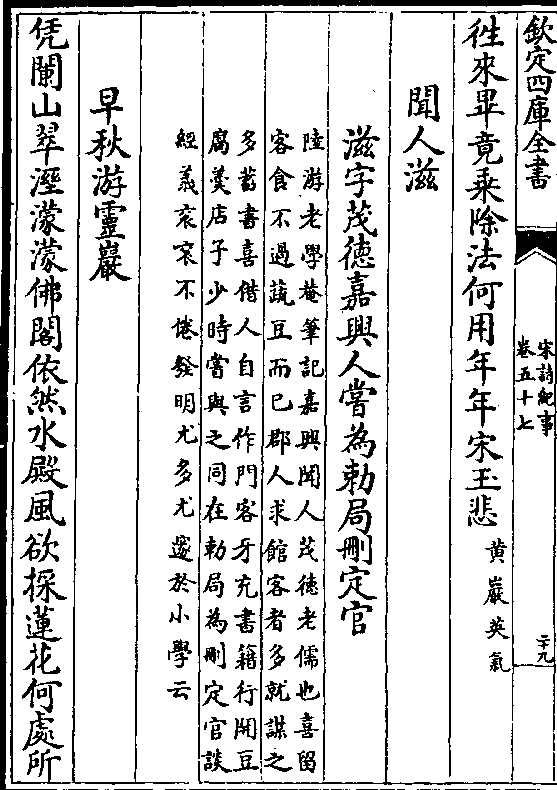 欽定四庫全書
宋詩紀事
卷五十七
二十九
徃來畢竟乗除法何用年年宋玉悲
黄巖英氣
聞人滋
滋字茂德嘉興人嘗為勅局刪定官
陸游老學菴筆記嘉興聞人茂徳老儒也喜留
客食不過蔬豆而已郡人求館客者多就謀之
多蓄書喜借人自言作門客牙充書籍行開豆
腐羮店子少時嘗與之同在勅局為刪定官談
經義衮衮不倦發明尤多尤邃於小學云
早秋游靈巖
凭闌山翠溼濛濛佛閣依然水殿風欲採蓮花何處所